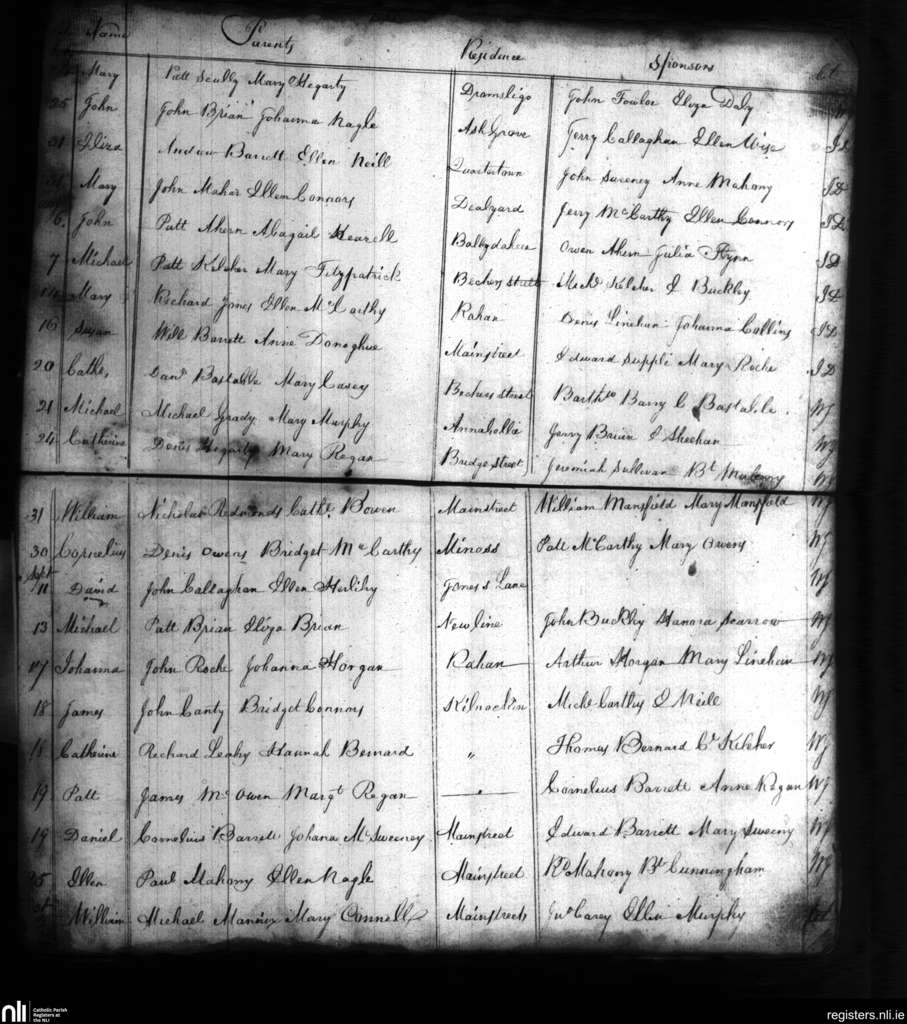 Name Parents Residence Sponsors
Mary Patt Scully Mary Hegarty Dramsligo John Fowloe Eliza Daly
25 John John Brian Johanna Nagle Ash Grove Jerry Callaghan Ellen Wise
31 Eliza Andrew Barrett Ellen Neill Quartertown John Sweeney Anne Mahony
Mary John Maher Ellen Connors Dealyard Jerry McCarthy Ellen Connors
6 John Patt Ahern Abagail Ballydaheen Owen Ahern Julia Flynn
7 Michael Patt Keleher Mary Fitzpatrick Bechers Street Michl Kelcher E Buckley
14 Mary Richard Jones Ellen McCarthy Rahan Denis Linehan Johanna Collins
16 Susan Will Barrett Anne Donoghue Mainstreet Edward Supple Mary Roche
20 Cathe Danl Bastable Mary Casey Bechers Street Barthw Barry C Bastable
21 Michael Michael Grady Mary Murphy Annabella Jerry Brien E Sheehan
24 Catherine Denis Hegarty Mary Regan Bridge Street Jeremiah Sullivan Bt
31 William Nicholas Redmonds Cathe Bowen Mainstreet William Mansfield Mary Mansfield WJ
30 Cornelius Denis Owens Bridget McCarthy Minoss Patt McCarthy Mary Owens WJ
Sept
11 David John Callaghan Ellen Herlihy Jones's Lane WJ
13 Michael Patt Brian Eliza Brian Newline John Buckley Hanora Scarrow WJ
17 Johanna John Roche Johanna Horgan Rahan Arthur Horgan Mary Linehan WJ
18 James John Canty Bridget Connors Michl Carthy E Neill WJ
18 Catherine Richard Leahy Hannah Bernard " Thomas Bernard Ce Keleher WJ
19 Patt James McOwen Margt Regan — Cornelius Barrett Anne Regan WJ
19 Daniel Cornelius Barrett Johana McSweeney Mainstreet Edward Barrett Mary Sweeny WJ
25 Ellen Paul Mahony Ellen Nagle Mainstreet Rd Mahony Bt Cunningham WJ
William Michael Mannix Mary Connell Mainstreet Jno Carey Ellen Murphy
nli Catholic Parish
Registers at
the NLI
registers.nli.ie